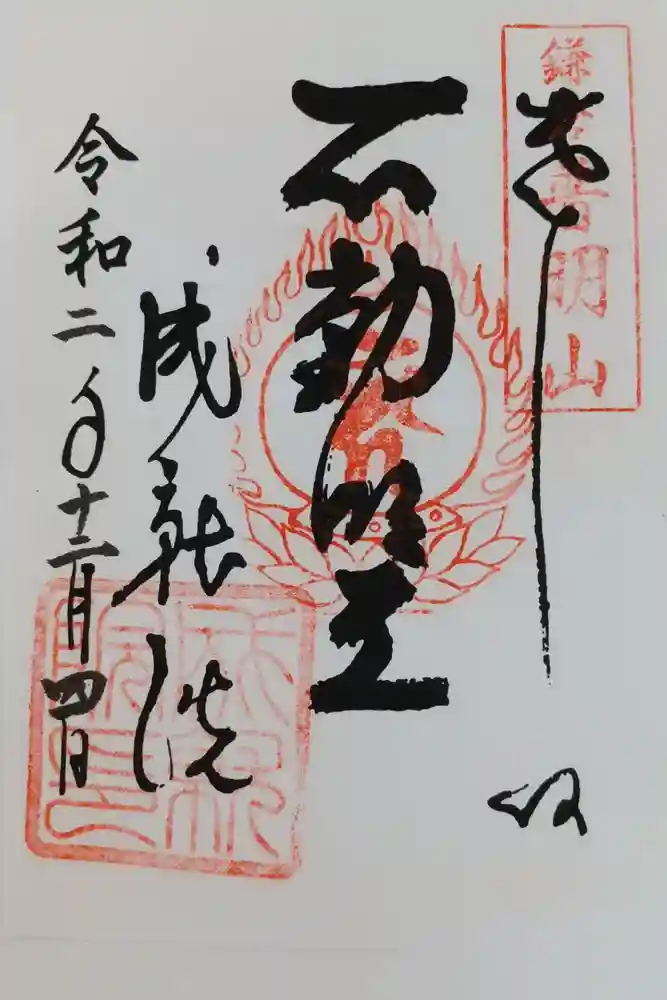 鎌倉普明山
奉拝
不動明王
成就院
令和二年十二月四日
成就院印